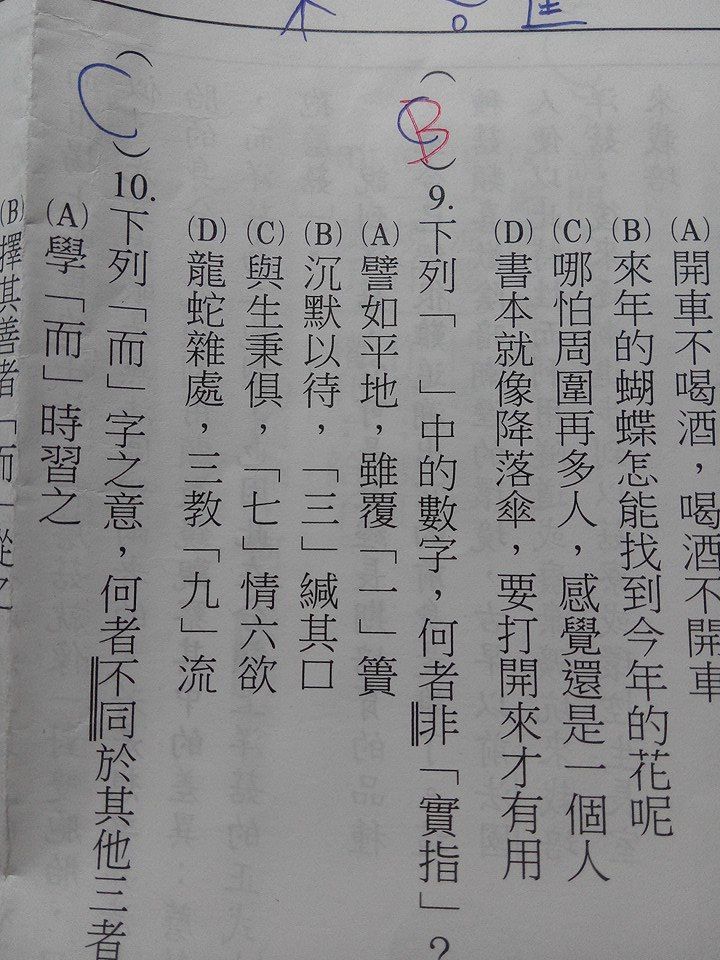 (A)開車不喝酒，喝酒不開車
(B)來年的蝴蝶怎能找到今年的花呢
(C)哪怕周圍再多人，感覺還是一個人
(D)書本就像降落傘，要打開來才有用
(B)9.下列「 」中的數字，何者非「實指」？
(A)譬如平地，雖覆「一」簣
(B)沉默以待，「三」緘其口
(C)與生秉俱，「七」情六欲
(D)龍蛇雜處，三教「九」流
(C)10.下列「而」字之意，何者不同於其他三者
(A)學「而」時習之
(B)擇其善者「而」從之